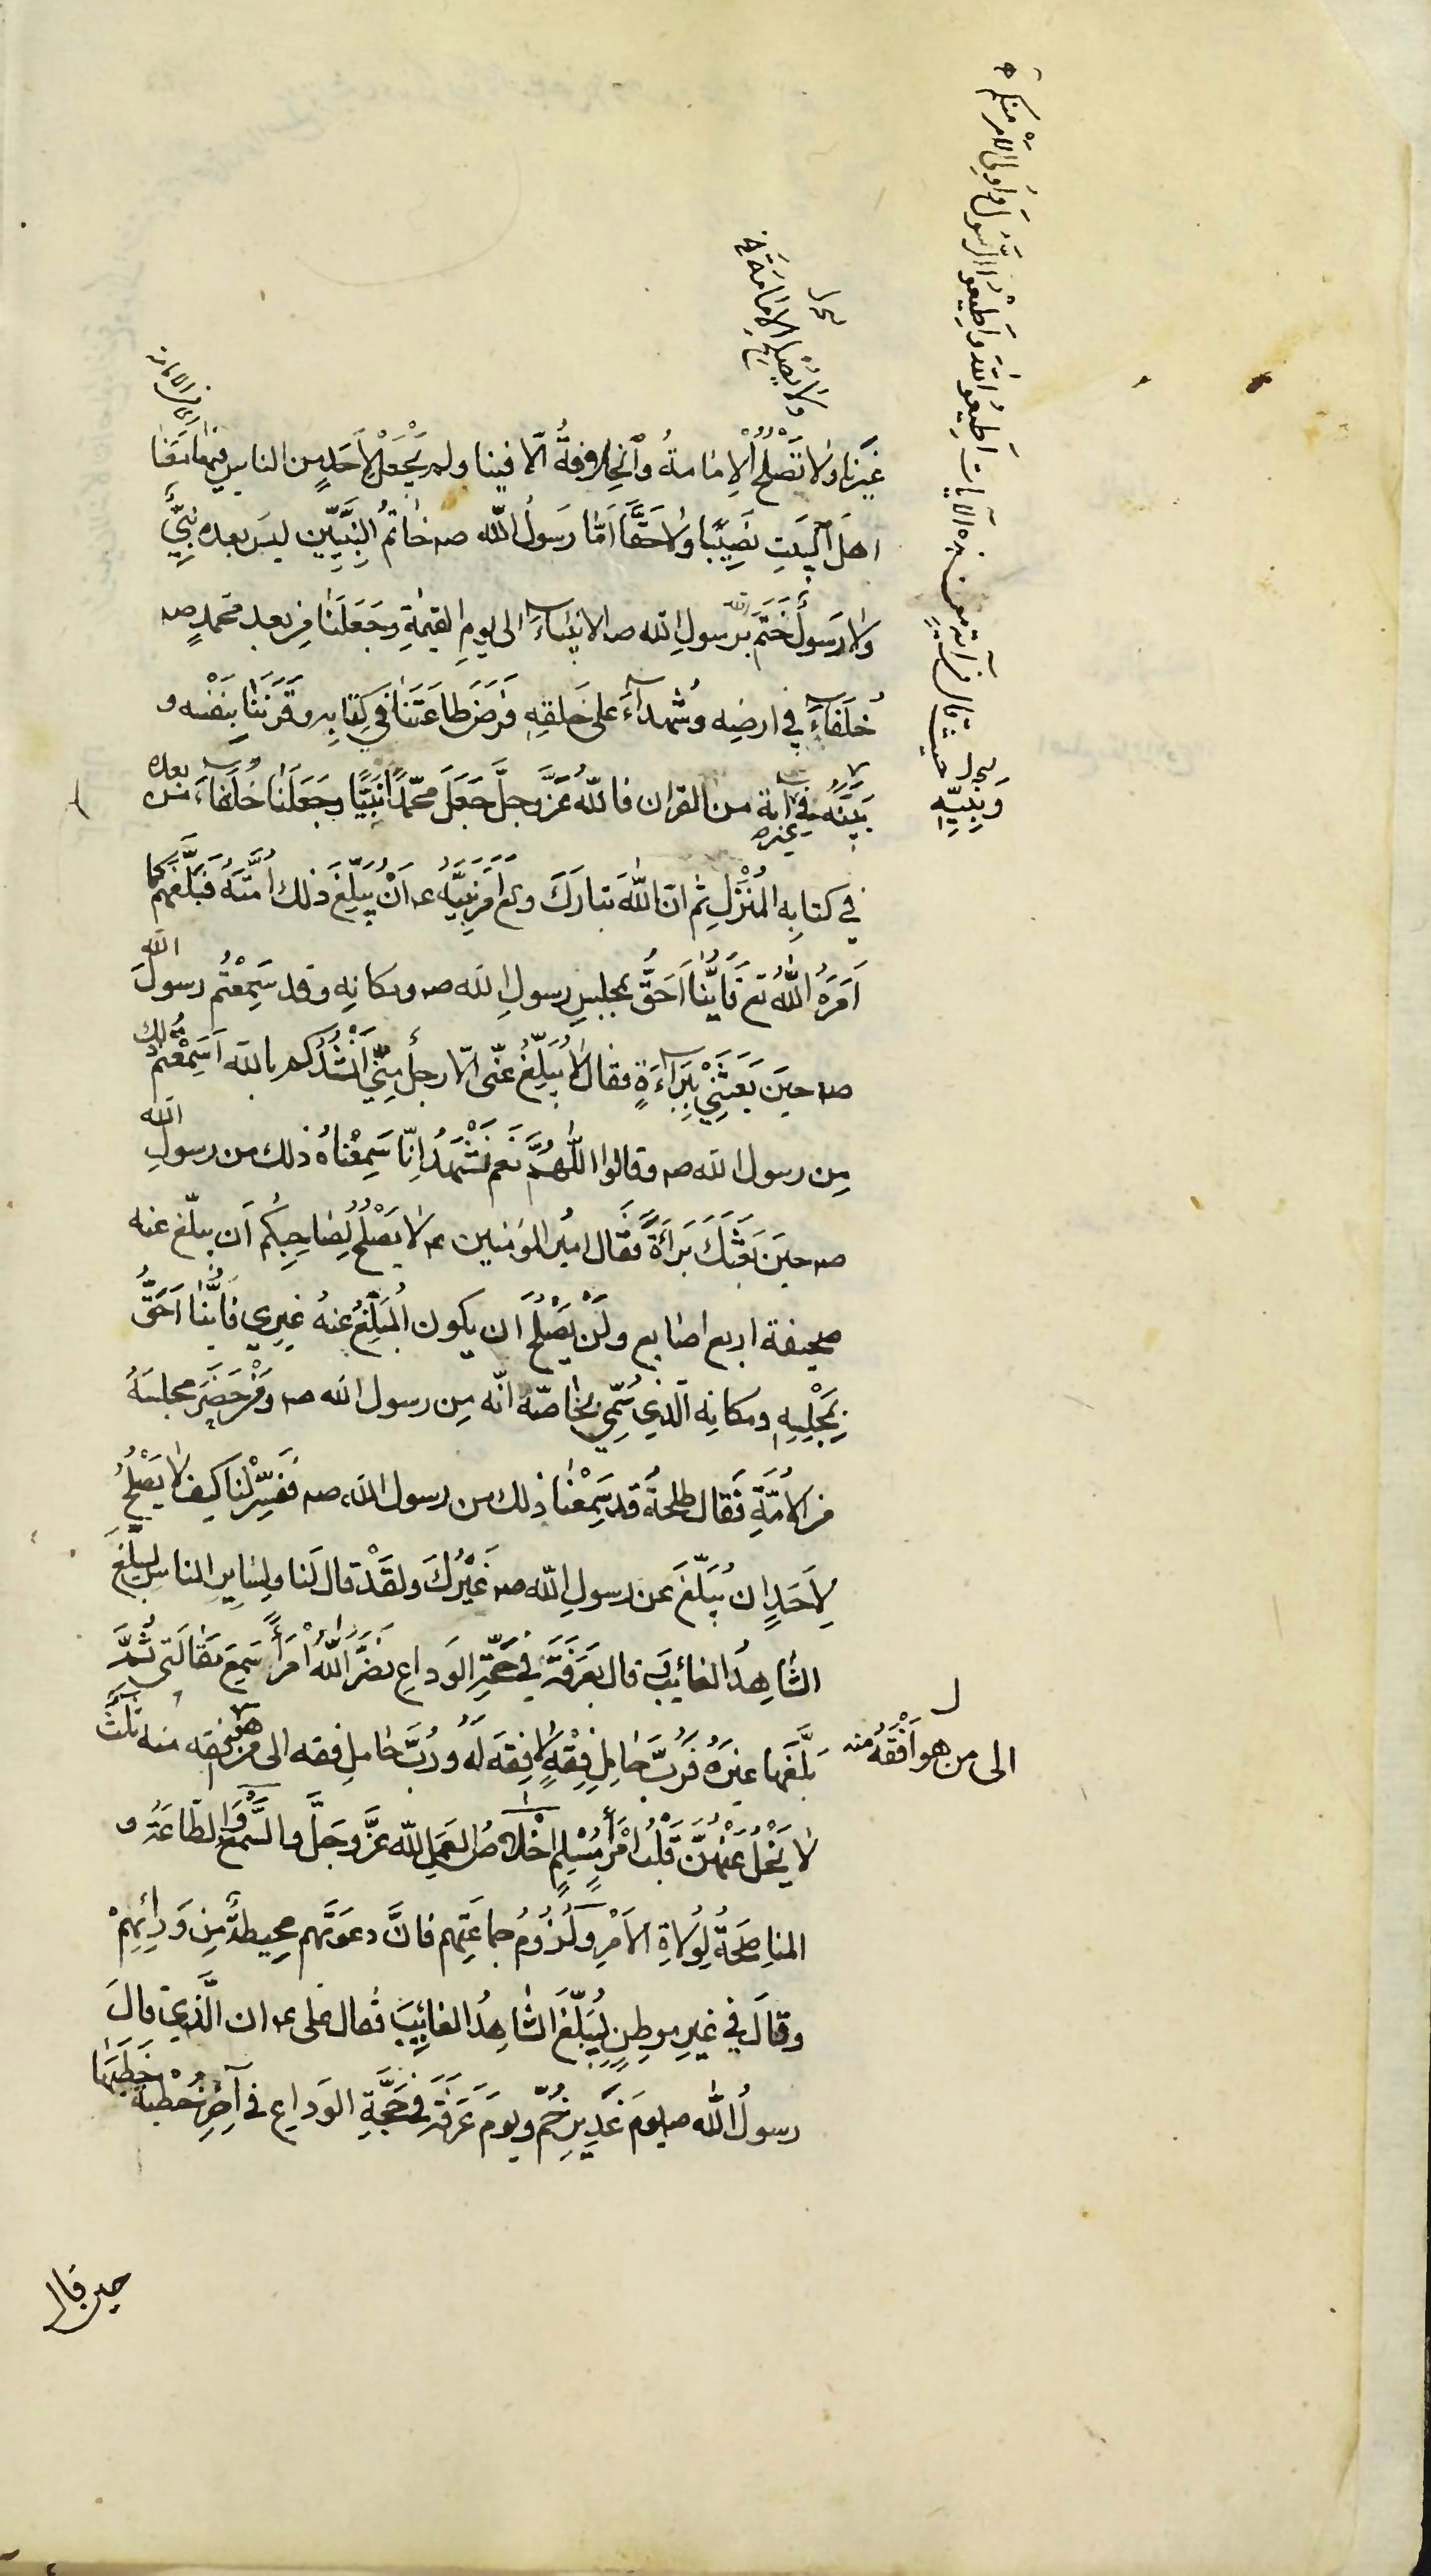 غَيرَنا ولا تَصْلُحُ الإمامةُ والخلافةُ الّا فينا ولم يَجْعَلْ لِاَحَدٍ من الناسِ فيها مَعَنا
اهلَ البَيتِ نَصِيبًا ولا حَقًّا اَمّا رَسولُ الله صه خاتمُ النَّبِيّين ليسَ بعده نبِيٌّ
ولا رَسولٌ خَتَمَ برسولِ الله صه الانبياءَ الى يومِ القيمةِ وجَعَلَنا مِن بعد محمدٍ صه
خُلَفاءَ في ارضِه وشُهداءَ على خَلقِهِ فَرَضَ طاعَتَنا في كِتابِه وقَرَنَنا بِنَفْسه و
بَيَّنَهُ في غيره آية من القران فاللهُ عَزَّ وجلَّ جَعَلَ محمّدًا نَبِيًّا وجَعَلَنا خُلَفاءَ من بعده
في كتابِه المُنْزَلِ ثم انّ اللهَ تبارَكَ وتع اَمَرَ نَبِيَّهُ عه اَنْ يُبَلِّغَ ذلك اُمَّتَهُ فَبَلَّغَهُم كما
اَمَرَهُ اللهُ تع فَاَيُّنا اَحَقُّ بمجلسِ رسولِ الله صه ومكانِهِ وقد سَمِعْتُم رسولَ الله
صه حينَ بَعَثَنِي بِبَراءَةٍ فقال لا يُبَلِّغُ عنّى الّا رجلٌ مِنّي اَنْشُدُكم بالله اَسَمِعْتم ذلك
مِن رسول الله صه وقالوا اللّهُمَّ نَعَم نَشْهَدُ اِنّا سَمِعْناهُ ذلك من رسولِ الله
صه حينَ بَعَثَكَ بَراءَةً فَقال اميرُ المؤمنين عه لا يَصْلُحُ لِصاحِبِكُم اَن يبلّغ عنه
صحيفة اربع اصابع ولَنْ يَصْلُحَ ان يكون المُبَلِّغُ عنهُ غيري فاَيُّنا اَحَقُّ
بِمَجْلِسِهِ ومكانِه الّذي سُمِّي بخاصّة انّه مِن رسول الله صه ومَنْ حَضَرَ مجلسَهُ
من الاُمّةِ فَقال طلحةُ قد سَمِعْنا ذلك من رسول الله صه فَفَسِّرْ لنا كيف لا يَصْلُحُ
لِاَحَدٍ ان يُبَلّغَ عن رسولِ الله صه غَيْرُكَ ولقَدْ قال لَنا ولِسايرِ الناسِ ليُبلّغَ
الشّاهِدُ الغائِبَ قال بعَرَفَةَ في حَجّةِ الوَداعِ نَضَّرَ اللهُ امْرَأً سَمِعَ مَقالَتي ثُمَّ
بَلَّغَها غيرَهُ فَرُبَّ حامِلِ فِقْهٍ لا فِقهَ لَهُ ورُبَّ حاملِ فقه الى من هو افقه منه ثلثٌ
الى من هو اَفْقَهُ منه
لا يَغِلُّ عَلَيْهِنَّ قَلْبُ امْرَأٍ مُسْلِمٍ اِخْلاصُ العَمَلِ لله عَزَّ وجَلَّ والسَّمْعُ والطّاعَةُ و
المناصَحَةُ لِوُلاةِ الاَمْرِ ولُزُومُ جماعَتِهم فانَّ دعوَتَهم محِيطةٌ مِن وَرائِهِمْ
وقالَ في غيرِ موطِنٍ لِيُبَلِّغَ الشّاهِدُ الغائِبَ فقال على عه ان الّذي قالَ
رسولُ الله صه يومَ غَديرِ خُمّ ويومَ عَرَفَةَ في حَجّةِ الوَداعِ في آخِرِ خُطْبَة خَطَبَها
حين قال
ولا يَصْلُحُ الامامَةُ
وَبِنَبيّهِ
حيث قال
اَطِيعُوا اللّهَ وَاَطِيعُوا الرَّسُولَ وَاُولِى الْاَمْرِ مِنْكُم